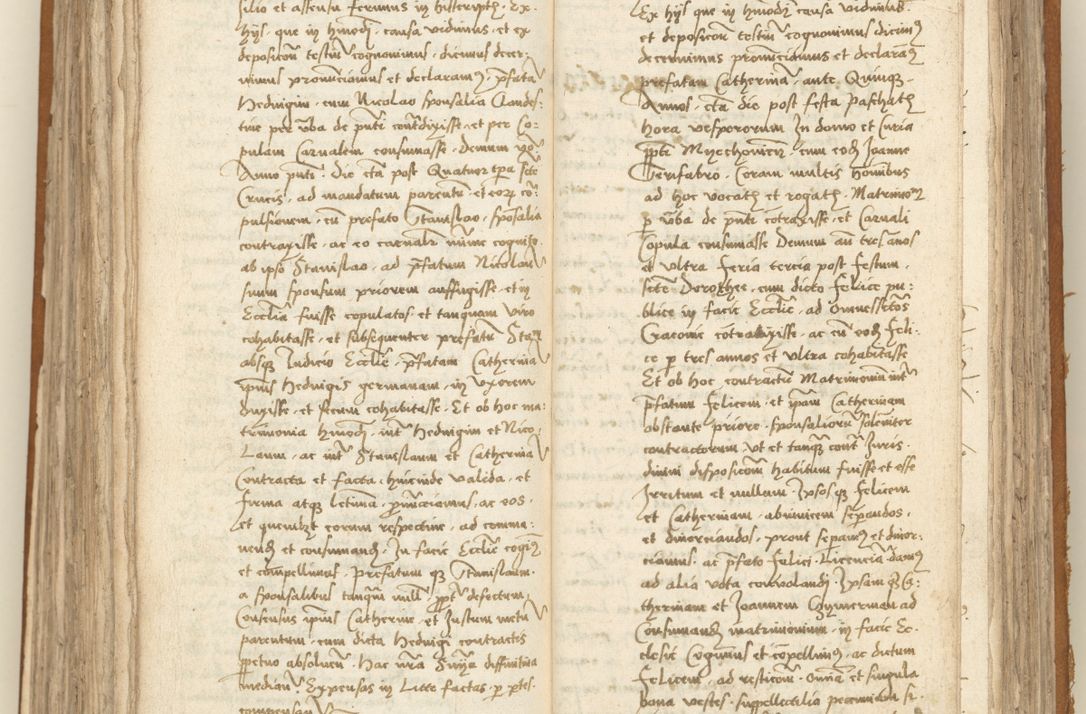 silio et assensu ferimus in hijsscriptis. Ex
hijs que in hmodi causa vidimus et ex
deposicōn testiū cognovimus, dicimus decer-
nimus pronūciamus et declaramꝰ prefatā
Hedwigim cum Nicolao sponsalia Clandes-
tine per vba de pnti contraxisse et per Co-
pulam Carnalem consumasse. Demum vō
Anno pnti die ctā post Quatuor tpa scte
Crucis, ad mandatum parentū et eorꝫ cō-
pulsionem, cū prefato Stanislao, sposalia
contraxisse ac eo carnalr mīme cognito
ab ipso Stanislao, ad pfatum Nicolaū
suum sponsum priorem auffugisse et in
Ecclia fuisse copulatos et tanquam viro
cohabitasse et subsequenter prefatū Sta
absqꝫ Iudicio Ecclie pfatam Catherinā
ipius Hedwigis germanam in vxorem
duxisse et secum cohabitasse. Et ob hoc ma-
trimonia hmodi intr Hedwigim et Nico-
laum, ac intr Stanislaum et Catherinā
Contracta et facta hincinde valida et
firma atqꝫ letima pronūciamus, ac eos
et quemlibet eorum respective, ad comma-
nendꝫ et consumandꝫ In facie Ecclie cogimꝰ
et compellimus. Prefatum qꝫ Stanislaum
a sponsalibus tanqm null propt defectum
Consensus ipius Catherine et Iustum metū
parentum cum dicta Hedwigi contractis
ppetuo absolvim. Hac nra Sniā diffinitiva
mediañ. Expensas in Lite factas p ptes
compensañ
Ex hijs que in hmodi causa vidimus
et deposicōn testiū cognovimus dicimꝰ
decernimus pronūciamus et declaramꝰ
prefatam Catherinā ante Quinqꝫ
Annos ctā die post festa paschatꝫ
hora vesperorum In domo et Curia
ppti cum eodꝫ Joanne
Coram multis hominibus
ad hoc vocatis et rogatis. Matrimoꝫ
p vba de pnti cōtraxisse et Carnali
Copula consumasse Demum añ tres años
et vltra feria tercia post festum
scte Dorothee cum dicto felice pu-
blice in facie Ecclie, ad
cōtraxisse ac cū eodꝫ feli-
ce p tres annos et vltra cohabitasse
Et ob hoc contractū Matrimoniū intr
pfatum felicem et ipam Catherinam
obstante priore sponsaliorū solēniter
contractorum, vt et tanqꝫ contr Iuris
divini disposicōm habitum fuisse et esse
Irritum et nullum. Ipsos qꝫ felicem
et Catherinam, abinvicem sepandos
et divorciandos prout sepamꝰ et divor-
ciamus, ac pfato felici Licenciā damꝰ
ad alia vota convolandi. Ipsam qꝫ Ca-
therinam et Joannem Czymerman ad
Consumandꝫ matrimonium in facie Ec-
clesie Cogimus et cōpellimꝰ, ac dictum
felicem, ad resticōn Omnia et singula
bona vestes suppellectilia